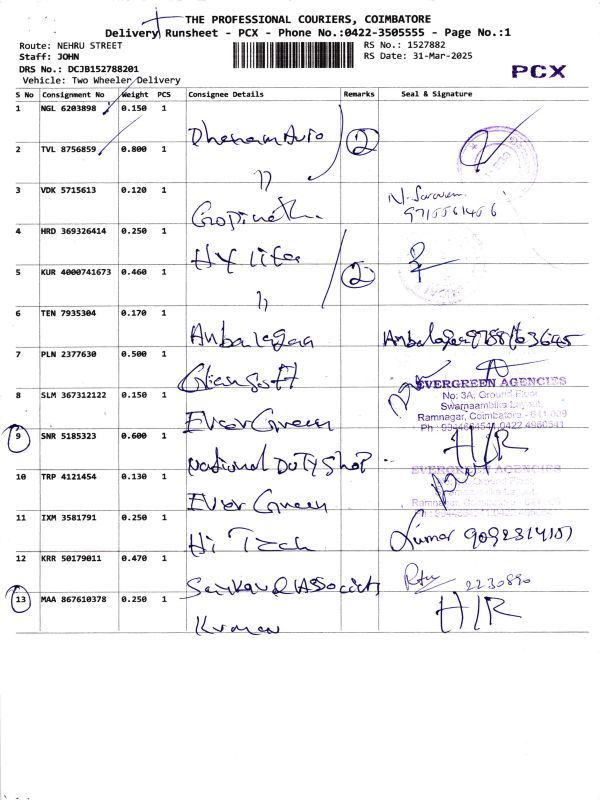 THE PROFESSIONAL COURIERS, COIMBATORE
Delivery Runsheet - PCX - Phone No.:0422-3505555 - Page No.:1
Route: NEHRU STREET
RS No.: 1527882
Staff: JOHN
RS Date: 31-Mar-2025
DRS No.: DCJB152788201
PCX
Vehicle: Two Wheeler Delivery
S No Consignment No Weight PCS Consignee Details Remarks Seal & Signature
1 NGL 6203898 0.150 1 2
2 TVL 8756859 0.800 1 "
3 VDK 5715613 0.120 1 Gopinath
4 HRD 369326414 0.250 1 Hy life
5 KUR 4000741673 0.460 1 " 2
6 TEN 7935304 0.170 1 Anbalagan
7 PLN 2377630 0.500 1
EVERGREEN AGENCIES
No: 3A, Ground Floor,
Swarnaambika Layout,
Ramnagar, Coimbatore - 641 009
8 SLM 367312122 0.150 1 Ever Green
9 SNR 5185323 0.600 1 National Duty Shop
EVERGREEN AGENCIES
10 TRP 4121454 0.130 1 Ever Green
11 IXM 3581791 0.250 1 Hi Tech Kumar
12 KRR 50179011 0.470 1 2230890
13 MAA 867610378 0.250 1 Kumar